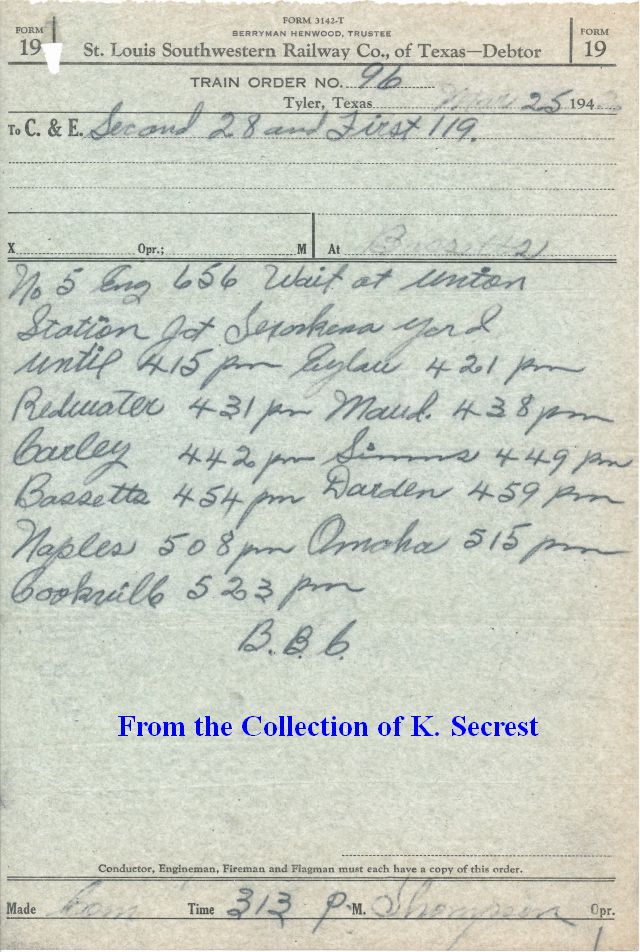 FORM 3142-T
BERRYMAN HENWOOD, TRUSTEE
FORM 19 St. Louis Southwestern Railway Co., of Texas—Debtor FORM 19
TRAIN ORDER NO. 96
Tyler, Texas Mar 25 194
To C. & E. Second 28 and First 119.
X Opr.; M At
No 5 Eng 656 Wait at Union
Station Jct Texarkana yard
until 415 pm Eylau 421 pm
Redwater 431 pm Maud. 438 pm
Carley 442 pm Simms 449 pm
Bassetts 454 pm Darden 459 pm
Naples 508 pm Omaha 515 pm
Cookville 523 pm
B. B. C.
From the Collection of K. Secrest
Conductor, Engineman, Fireman and Flagman must each have a copy of this order.
Made Com Time 313 P M. Thompson Opr.